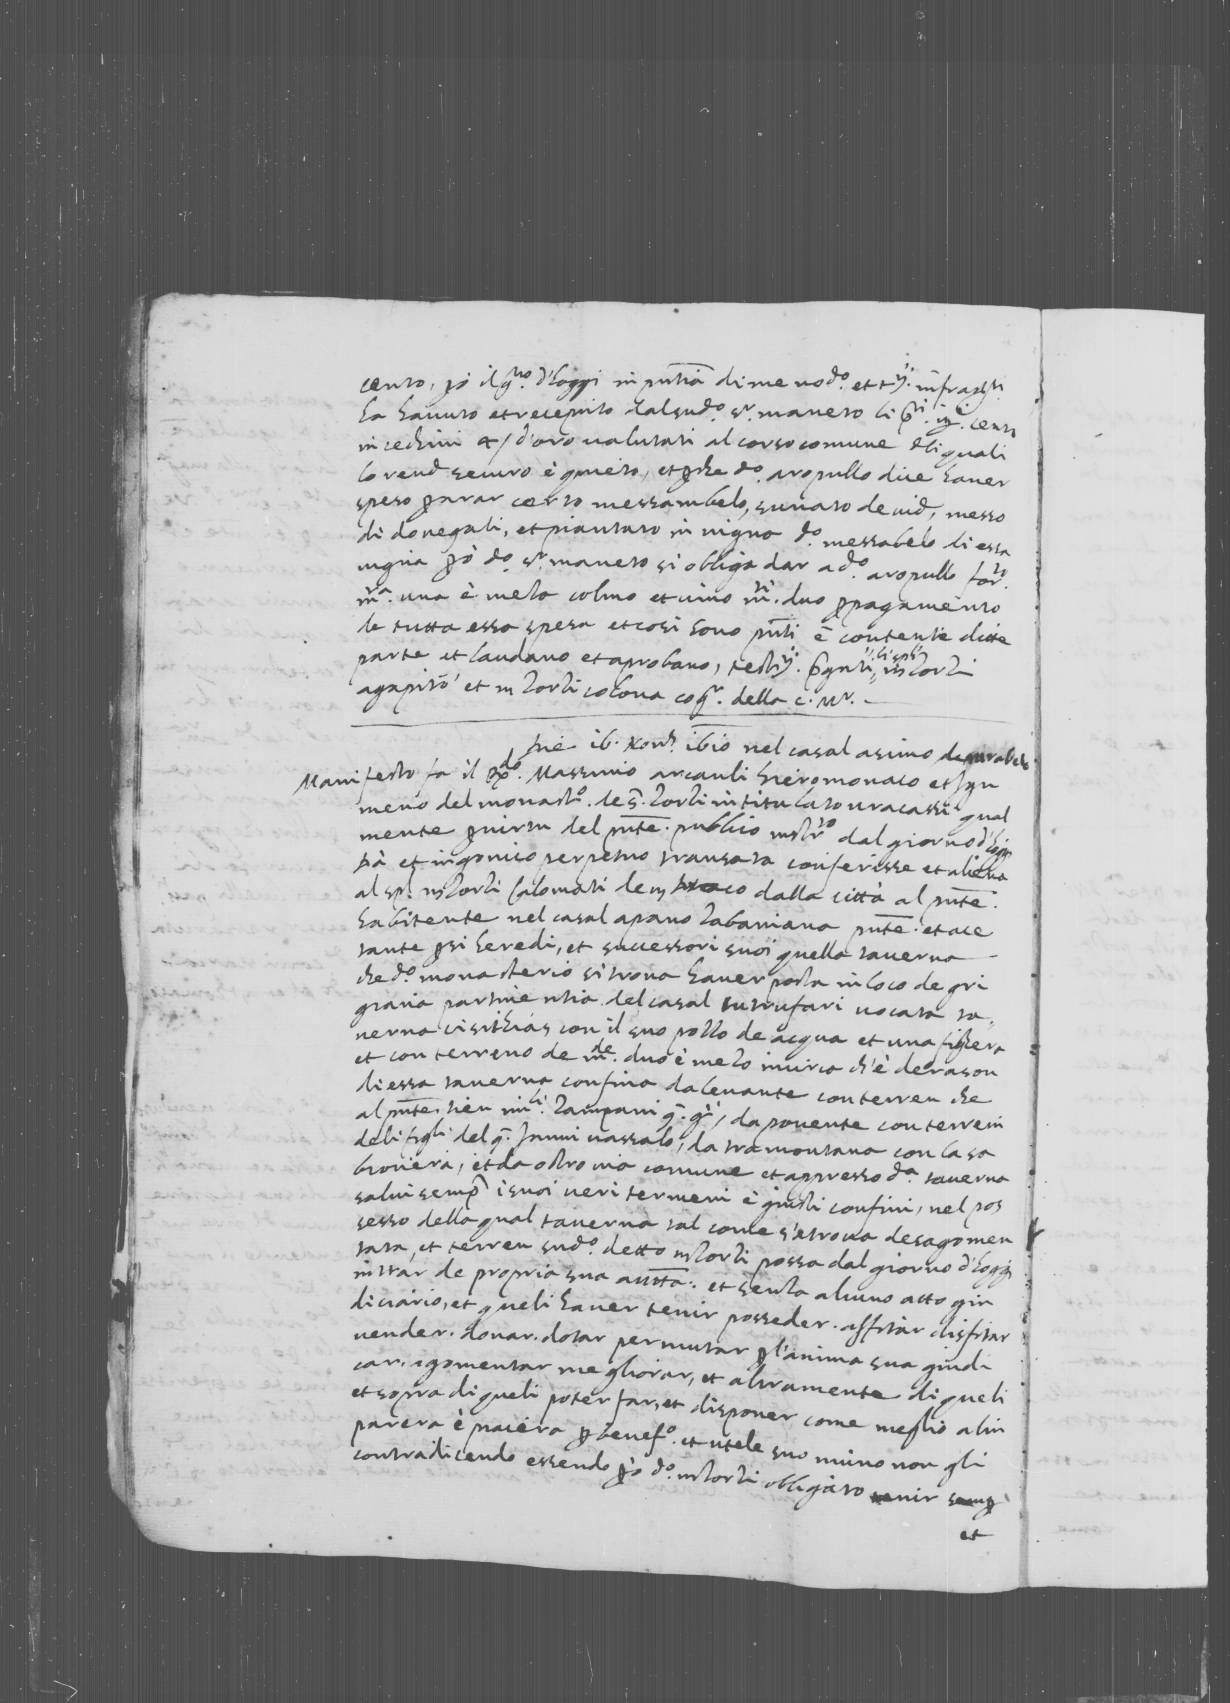 cento, però il g.no d'hoggi in pñtia di me nod.o et tij. infrascti.
ha havuto et receputo dal sud.o sr. maneto li
in cechini d'oro valutati al corso comune deli quali
lo rend. securo è quieto, et perche do. aropullo dice haver
speso per arar certo messambelo, messo
di donegali, et piantato in vigna do. messabelo di essa
vigna però do. sr. maneto si obliga dar a do. aropullo for.to
una è meza colmo et vino duo per pagamento
de tutta essa spesa et cosi sono pñti è contente ditte
parte et laudano et aprobano, testij.
agapito et m zorzi colona della c. mr.
Die ib. xovr. ibio nel casal asimo
Manifesto fa il Massimio arcauli hieromonaco et Igu
meno del monastro. de S. zorzi intitulato vracassi qual
mente per virtu del pñte. publico instrto dal giorno d'hoggi
dà et in gonico perpetuo transata conferisse et aliena
al sp. ms zorzi Calomati de ms dalla città al pñte.
habitente nel casal apano zabaniana pñte. et ace
tante per si heredi, et successori suoi quella taverna
che do. monasterio si trova haver posta in loco de gri
graria partinentia del casal cutrufari vocata ta,
verna con il suo pozzo de acqua et una fighera
et con terreno de duo è mezo in circa ch'è de rason
di essa taverna confina da levante con terren che
al pñte tien zampani q. , da ponente con terreni
deli figli del q. Janni vassalo, da tramontana con la sa
lioniera, et da ostro via comune et appresso da. taverna
salvi semp. i suoi veri termeni è giusti confini, nel pos
sesso della qual taverna tal come s'atrova desagomen
tata, et terren sudo. detto ms zorzi possa dal giorno d'hoggi
intrar de propria sua et senza alcuno atto giu
diciario, et queli haver tenir posseder. affitar disfitar
vender. donar. dotar permutar per l'anima sua giudi
car. agomentar megliorar, et altramente di queli
et sopra di queli poter far, et disponer come meglio a lui
parera è piacera per benef.o et utele suo niuno non gli
contradicendo essendo però do. ms zorzi obligato tenir semp
et